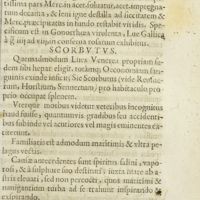 tissima pars Merc. in acet. solvatur, acet. impregnatum
decanta, & leni igne destilla ad siccitatem &
Merc. præcipitatus in fundo restabit viridis. Specificum
est in Gonorrhœa virulenta, Lue Gallica
à g iiij ad viij in conserva rosarum exhibitus.
SCORBUTUS.
Quemadmodum Lues Venerea propriam sedem
sibi hepar eligit, totamq; Oeconomiam sanguinis
exinde inficit; Sic Scorbutus (vide
Horstium, Sennertum,) pro habitaculo proprio
occupat splenem.
Uterque morbus videtur veteribus incognitus
haud fuisse, quamvis gradibus seu accidentibus
subinde vel acutiores vel magis eminentes exiterint.
Familiaris est admodum maritimis & ultra pelagus
vectis.
Causæ antecedentes sunt spiritus salini, vaporosi,
& sulphure suo destituti, juxta litore ab astris
elevati, seu non percocti, quos maritimi &
navigantium turba ad se trahunt inspirando &
exspirando.